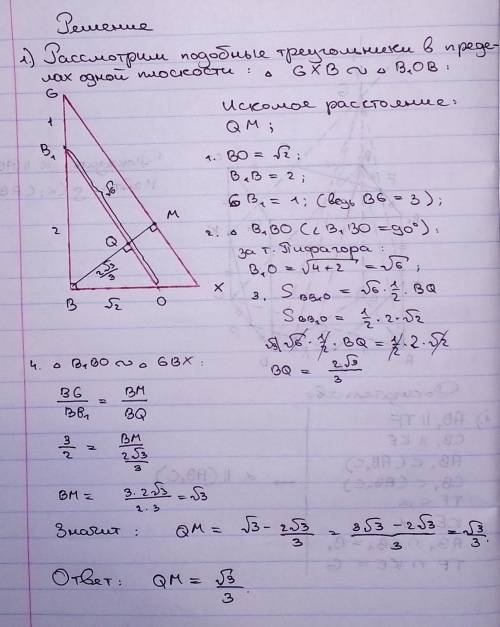 Решение
1.) Рассмотрим подобные треугольники в преде-
лах одной плоскости: ▵ GXB ∾ ▵ B₁OB:
G
1
B₁
√6
2
M
Q
2√3/3
B
√2
O
X
Искомое расстояние:
QM;
1. BO = √2;
B₁B = 2;
GB₁ = 1; (ведь BG = 3);
2. ▵ B₁BO (∠ B₁BO = 90°):
за т. Пифагора:
B₁O = √4+2 = √6;
3. S BB₁O = √6 · 1/2 · BQ
S BB₁O = 1/2 · 2 · √2
√6 · 1/2 · BQ = 1/2 · 2 · √2
BQ = 2√3/3
4. ▵ B₁BO ∾ ▵ GBX:
BG/BB₁ = BM/BQ
3/2 = BM/(2√3/3)
BM = 3·2√3/2·3 = √3
Значит: QM = √3 - 2√3/3 = 3√3 - 2√3/3 = √3/3.
Ответ: QM = √3/3.